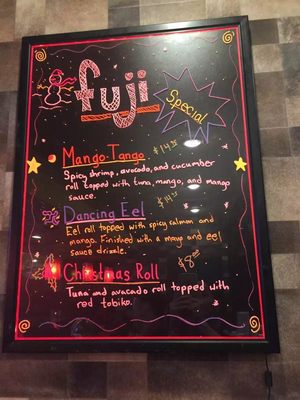 fuji
Special
Mango-Tango
Spicy shrimp, avocado, and cucumber
roll topped with tuna, mango, and mango
sauce.
Dancing Eel
Eel roll topped with spicy salmon and
mango. Finished with a mayo and eel
sauce drizzle.
Christmas Roll
Tuna and avocado roll topped with
red tobiko.